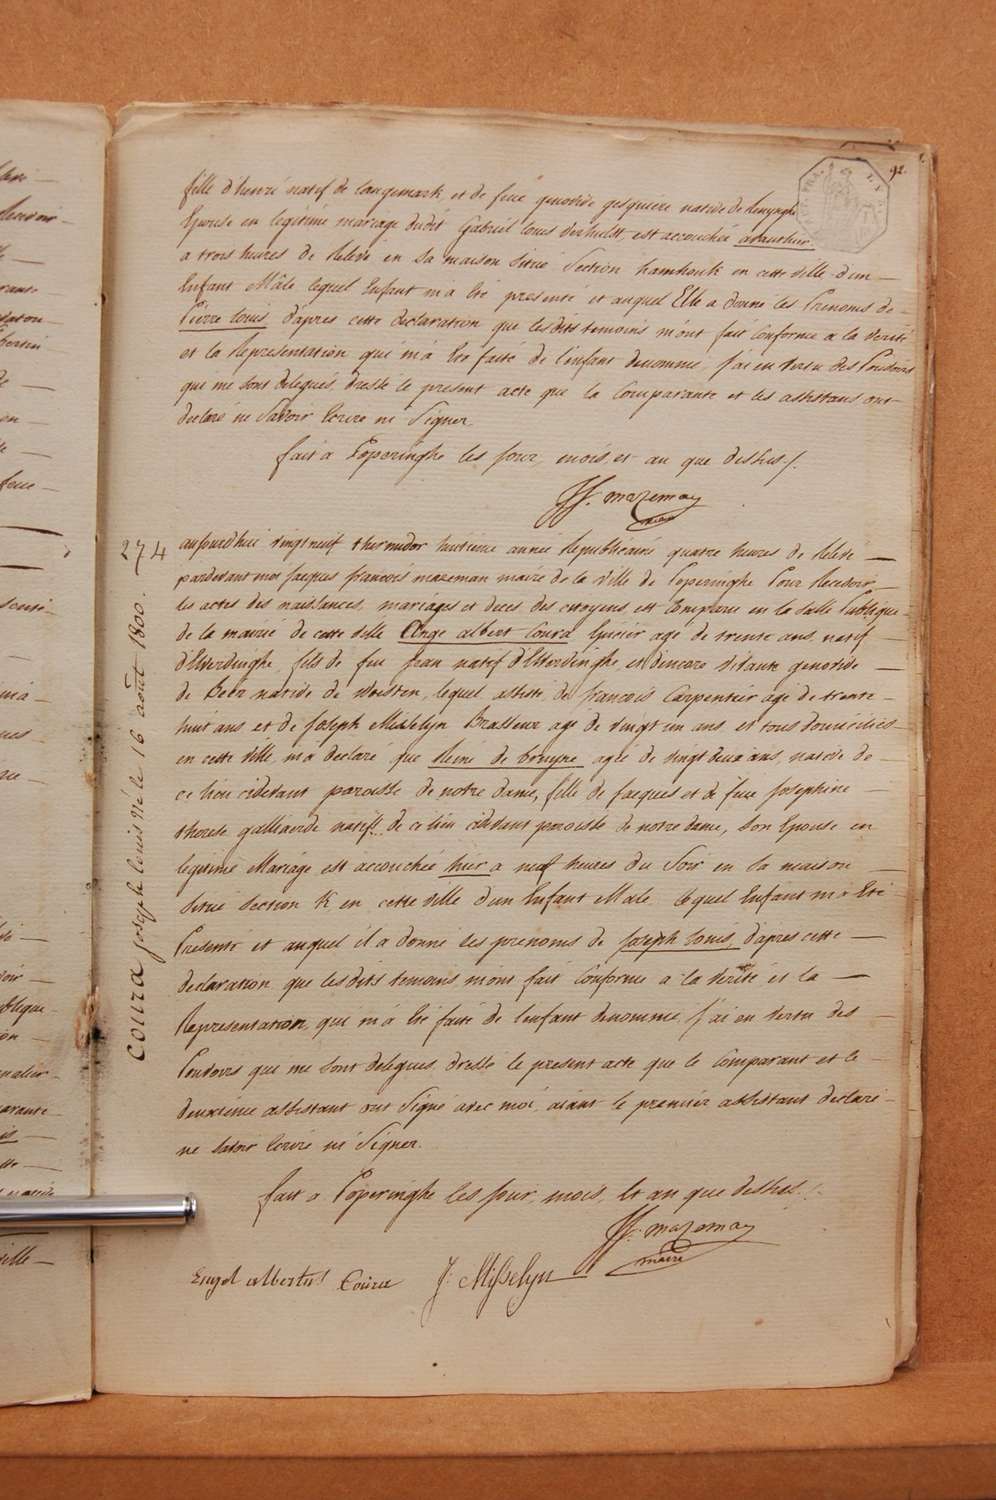 92.
fille d'henri natif de langemark, et de feue genoviève gesquiere native de
Epouse en legitime mariage dudit Gabriel louis verhulst, est accouchée avanthier
a trois heures de relevé en sa maison située Section hamhouk en cette ville d'un
Enfant Mâle lequel Enfant m'a été presenté et auquel Elle a donné les Prenoms de
Pierre louis, d'apres cette declaration que lesdits temoins m'ont fait Conforme a la verité
et la Representation qui m'a été faite de l'enfant denommé, j'ai en vertu des Pouvoirs
qui me sont delegués dressé le present acte que la Comparante et les assistans ont
declaré ne Savoir Ecrire ni Signer.
fait à Poperinghe les jour, mois, et an que dessus /.
JF. mazeman
maire
274
coura joseph louis né le 16 août 1800.
aujourd'hui vingt neuf thermidor huitieme année Republicaine quatre heures de relevé
pardevant moi jacques francois mazeman maire de la ville de Poperinghe Pour Recevoir
les actes des naissances, mariages et deces des citoyens, est Comparu en la Salle Publique
de la mairie de cette ville Ange albert Coura Epicier agé de trente ans, natif
d'Elverdinghe, fils de feu jean natif d'Elverdinghe, et d'encore vivante genoviève
de Beer native de woisten, lequel assisté de francois Carpentier agé de trente
huit ans et de Joseph Misselyn Brasseur agé de vingt un ans, et tous domiciliés
en cette ville, m'a declaré que Reine de bruyne agée de vingt deux ans, native de
ce lieu cidevant paroisse de notre dame, fille de jacques et de feue Josephine
therese galliaerde natifs de ce lieu cidevant paroisse de notre dame, Son Epouse en
legitime Mariage est accouchée hier a neuf heures du Soir en Sa maison
Située Section K en cette ville d'un Enfant Male lequel Enfant m'a Eté
Presenté et auquel il a donné les prenoms de joseph louis, d'apres cette
declaration que lesdits temoins m'ont fait Conforme a la verité et la
Representation qui m'a été faite de l'enfant denommé j'ai en vertu des
Pouvoirs qui me sont delegués dressé le present acte que le Comparant et le
deuxième assistant ont Signé avec moi, aiant le premier assistant declaré
ne Savoir Ecrire ni Signer.
fait a Poperinghe les jour, mois, et an que dessus /.
JF. mazeman
maire
Engel albertus Coura J: Misselyn